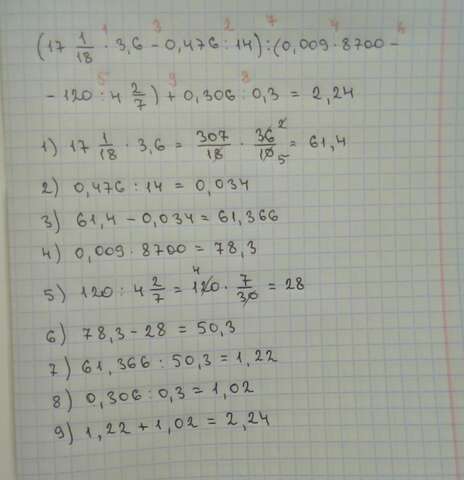 1 3 2 7 4 6
(17 1/18 · 3,6 - 0,476 : 14) : (0,009 · 8700 -
5 9 8
- 120 : 4 2/7) + 0,306 : 0,3 = 2,24
1) 17 1/18 · 3,6 = 307/18 · 36 2/10 5 = 61,4
2) 0,476 : 14 = 0,034
3) 61,4 - 0,034 = 61,366
4) 0,009 · 8700 = 78,3
5) 120 : 4 2/7 = 4 120 · 7/30 = 28
6) 78,3 - 28 = 50,3
7) 61,366 : 50,3 = 1,22
8) 0,306 : 0,3 = 1,02
9) 1,22 + 1,02 = 2,24